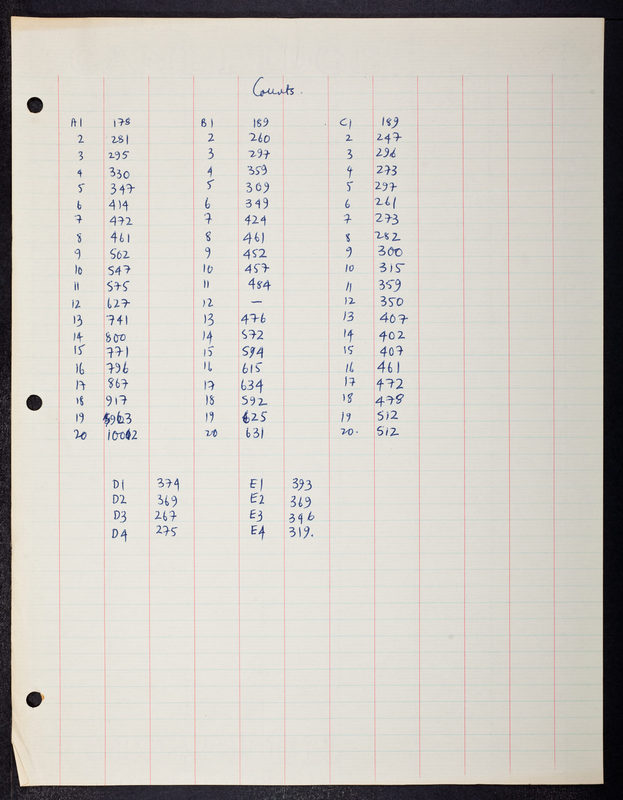 Counts.
A1 178 B1 189 C1 189
2 281 2 260 2 247
3 295 3 297 3 296
4 330 4 359 4 273
5 347 5 309 5 297
6 414 6 349 6 261
7 472 7 424 7 273
8 461 8 461 8 282
9 502 9 452 9 300
10 547 10 457 10 315
11 575 11 484 11 359
12 627 12 — 12 350
13 741 13 476 13 407
14 800 14 572 14 402
15 771 15 594 15 407
16 796 16 615 16 461
17 867 17 634 17 472
18 917 18 592 18 478
19 19 625 19 512
20 20 631 20. 512
D1 374 E1 393
D2 369 E2 369
D3 267 E3 346
D4 275 E4 319.